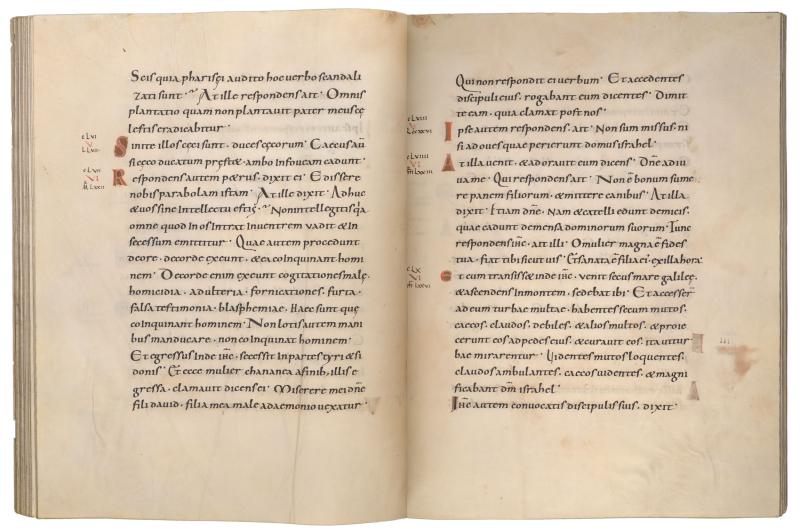 Scis quia pharisęi audito hoc verbo scandali
zati sunt. At ille respondens ait. Omnis
plantatio quam non plantavit pater meus cę
lestis eradicabitur
Sinite illos cęci sunt. duces cęcorum. Caecus aū
si cęco ducatum pręstet. ambo in foveam cadunt.
Respondens autem petrus. dixit ei. Edissere
nobis parabolam istam. At ille dixit. Adhuc
& vos sine intellectu estis. Non intellegitis qa
omne quod in os intrat in ventrem vadit & in
secessum emittitur. Quae autem procedunt
de ore. de corde exeunt. & ea coinquinant homi
nem. De corde enim exeunt cogitationes malę.
homicidia. adulteria. fornicationes. furta.
falsa testimonia. blasphemiae. Haec sunt quę
coinquinant hominem. Non lotis autem mani
bus manducare. non coinquinat hominem.
Et egressus inde ihc. secessit in partes tyri & si
donis. Et ecce mulier chananea a finib. illis e
gressa. clamavit dicens ei. Miserere mei dne
fili david. filia mea male a daemonio vexatur.
Qui non respondit ei verbum. Et accedentes
discipuli eius. rogabant eum dicentes. Dimit
te eam. quia clamat post nos.
Ipse autem respondens. ait. Non sum missus. ni
si ad oves quae perierunt domus israhel.
At illa venit. & adoravit eum dicens. Dne adiu
va me. Qui respondens ait. Non ē bonum sume
re panem filiorum. & mittere canibus. At illa
dixit. Etiam dne. Nam & catelli edunt de micis.
quae cadunt de mensa dominorum suorum. Tunc
respondens ihc. ait illi. O mulier magna ē fides
tua. fiat tibi sicut vis. Et sanata ē filia eius ex illa hora.
Et cum transisset inde ihc. venit secus mare galileę.
& ascendens in montem. sedebat ibi. Et accesser̄
ad eum turbae multae. habentes secum mutos.
caecos. claudos. debiles. & alios multos. & proie
cerunt eos ad pedes eius. & curavit eos. ita ut tur
bae mirarentur. Videntes mutos loquentes.
claudos ambulantes. caecos videntes. & magni
ficabant dm israhel.
Ihc autem convocatis discipulis suis. dixit.